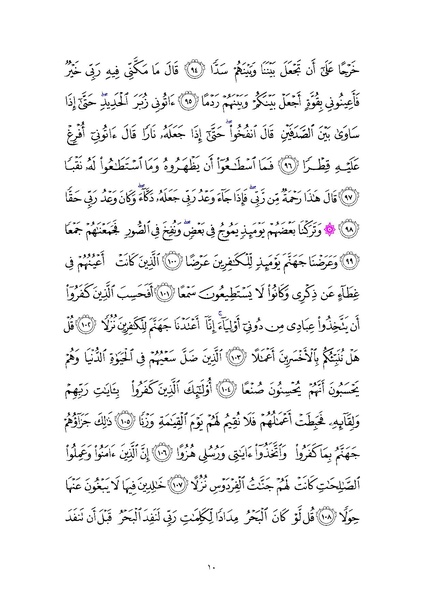 خَرْجًا عَلَىٰٓ أَن تَجْعَلَ بَيْنَنَا وَبَيْنَهُمْ سَدًّا ﴿٩٤﴾ قَالَ مَا مَكَّنِّى فِيهِ رَبِّى خَيْرٌ
فَأَعِينُونِى بِقُوَّةٍ أَجْعَلْ بَيْنَكُمْ وَبَيْنَهُمْ رَدْمًا ﴿٩٥﴾ ءَاتُونِى زُبَرَ ٱلْحَدِيدِ ۖ حَتَّىٰٓ إِذَا
سَاوَىٰ بَيْنَ ٱلصَّدَفَيْنِ قَالَ ٱنفُخُوا۟ ۖ حَتَّىٰٓ إِذَا جَعَلَهُۥ نَارًا قَالَ ءَاتُونِىٓ أُفْرِغْ
عَلَيْهِ قِطْرًا ﴿٩٦﴾ فَمَا ٱسْطَـٰعُوٓا۟ أَن يَظْهَرُوهُ وَمَا ٱسْتَطَـٰعُوا۟ لَهُۥ نَقْبًا
﴿٩٧﴾ قَالَ هَـٰذَا رَحْمَةٌ مِّن رَّبِّى ۖ فَإِذَا جَآءَ وَعْدُ رَبِّى جَعَلَهُۥ دَكَّآءَ ۖ وَكَانَ وَعْدُ رَبِّى حَقًّا
﴿٩٨﴾ ۞ وَتَرَكْنَا بَعْضَهُمْ يَوْمَئِذٍ يَمُوجُ فِى بَعْضٍ ۖ وَنُفِخَ فِى ٱلصُّورِ فَجَمَعْنَـٰهُمْ جَمْعًا
﴿٩٩﴾ وَعَرَضْنَا جَهَنَّمَ يَوْمَئِذٍ لِّلْكَـٰفِرِينَ عَرْضًا ﴿١٠٠﴾ ٱلَّذِينَ كَانَتْ أَعْيُنُهُمْ فِى
غِطَآءٍ عَن ذِكْرِى وَكَانُوا۟ لَا يَسْتَطِيعُونَ سَمْعًا ﴿١٠١﴾ أَفَحَسِبَ ٱلَّذِينَ كَفَرُوٓا۟
أَن يَتَّخِذُوا۟ عِبَادِى مِن دُونِىٓ أَوْلِيَآءَ ۚ إِنَّآ أَعْتَدْنَا جَهَنَّمَ لِلْكَـٰفِرِينَ نُزُلًا ﴿١٠٢﴾ قُلْ
هَلْ نُنَبِّئُكُم بِٱلْأَخْسَرِينَ أَعْمَـٰلًا ﴿١٠٣﴾ ٱلَّذِينَ ضَلَّ سَعْيُهُمْ فِى ٱلْحَيَوٰةِ ٱلدُّنْيَا وَهُمْ
يَحْسَبُونَ أَنَّهُمْ يُحْسِنُونَ صُنْعًا ﴿١٠٤﴾ أُو۟لَـٰٓئِكَ ٱلَّذِينَ كَفَرُوا۟ بِـَٔايَـٰتِ رَبِّهِمْ
وَلِقَآئِهِۦ فَحَبِطَتْ أَعْمَـٰلُهُمْ فَلَا نُقِيمُ لَهُمْ يَوْمَ ٱلْقِيَـٰمَةِ وَزْنًا ﴿١٠٥﴾ ذَٰلِكَ جَزَآؤُهُمْ
جَهَنَّمُ بِمَا كَفَرُوا۟ وَٱتَّخَذُوٓا۟ ءَايَـٰتِى وَرُسُلِى هُزُوًا ﴿١٠٦﴾ إِنَّ ٱلَّذِينَ ءَامَنُوا۟ وَعَمِلُوا۟
ٱلصَّـٰلِحَـٰتِ كَانَتْ لَهُمْ جَنَّـٰتُ ٱلْفِرْدَوْسِ نُزُلًا ﴿١٠٧﴾ خَـٰلِدِينَ فِيهَا لَا يَبْغُونَ عَنْهَا
حِوَلًا ﴿١٠٨﴾ قُل لَّوْ كَانَ ٱلْبَحْرُ مِدَادًا لِّكَلِمَـٰتِ رَبِّى لَنَفِدَ ٱلْبَحْرُ قَبْلَ أَن تَنفَدَ
١٠